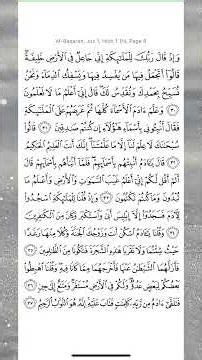 Al-Baqarah, Juz 1, Hizb 1 1/4, Page 6
وَإِذْ قَالَ رَبُّكَ لِلْمَلَٰٓئِكَةِ إِنِّى جَاعِلٌ فِى ٱلْأَرْضِ خَلِيفَةً
قَالُوٓا۟ أَتَجْعَلُ فِيهَا مَن يُفْسِدُ فِيهَا وَيَسْفِكُ ٱلدِّمَآءَ وَنَحْنُ
نُسَبِّحُ بِحَمْدِكَ وَنُقَدِّسُ لَكَ قَالَ إِنِّىٓ أَعْلَمُ مَا لَا تَعْلَمُونَ
٣٠ وَعَلَّمَ ءَادَمَ ٱلْأَسْمَآءَ كُلَّهَا ثُمَّ عَرَضَهُمْ عَلَى ٱلْمَلَٰٓئِكَةِ
فَقَالَ أَنۢبِـُٔونِى بِأَسْمَآءِ هَٰٓؤُلَآءِ إِن كُنتُمْ صَٰدِقِينَ ٣١ قَالُوا۟
سُبْحَٰنَكَ لَا عِلْمَ لَنَآ إِلَّا مَا عَلَّمْتَنَآ إِنَّكَ أَنتَ ٱلْعَلِيمُ ٱلْحَكِيمُ
٣٢ قَالَ يَٰٓـَٔادَمُ أَنۢبِئْهُم بِأَسْمَآئِهِمْ فَلَمَّآ أَنۢبَأَهُم بِأَسْمَآئِهِمْ قَالَ
أَلَمْ أَقُل لَّكُمْ إِنِّىٓ أَعْلَمُ غَيْبَ ٱلسَّمَٰوَٰتِ وَٱلْأَرْضِ وَأَعْلَمُ مَا
تُبْدُونَ وَمَا كُنتُمْ تَكْتُمُونَ ٣٣ وَإِذْ قُلْنَا لِلْمَلَٰٓئِكَةِ ٱسْجُدُوا۟
لِـَٔادَمَ فَسَجَدُوٓا۟ إِلَّآ إِبْلِيسَ أَبَىٰ وَٱسْتَكْبَرَ وَكَانَ مِنَ ٱلْكَٰفِرِينَ
٣٤ وَقُلْنَا يَٰٓـَٔادَمُ ٱسْكُنْ أَنتَ وَزَوْجُكَ ٱلْجَنَّةَ وَكُلَا مِنْهَا رَغَدًا
حَيْثُ شِئْتُمَا وَلَا تَقْرَبَا هَٰذِهِ ٱلشَّجَرَةَ فَتَكُونَا مِنَ ٱلظَّٰلِمِينَ ٣٥
فَأَزَلَّهُمَا ٱلشَّيْطَٰنُ عَنْهَا فَأَخْرَجَهُمَا مِمَّا كَانَا فِيهِ وَقُلْنَا ٱهْبِطُوا۟
بَعْضُكُمْ لِبَعْضٍ عَدُوٌّ وَلَكُمْ فِى ٱلْأَرْضِ مُسْتَقَرٌّ وَمَتَٰعٌ إِلَىٰ حِينٍ
٣٦ فَتَلَقَّىٰٓ ءَادَمُ مِن رَّبِّهِۦ كَلِمَٰتٍ فَتَابَ عَلَيْهِ إِنَّهُۥ هُوَ ٱلتَّوَّابُ ٱلرَّحِيمُ ٣٧